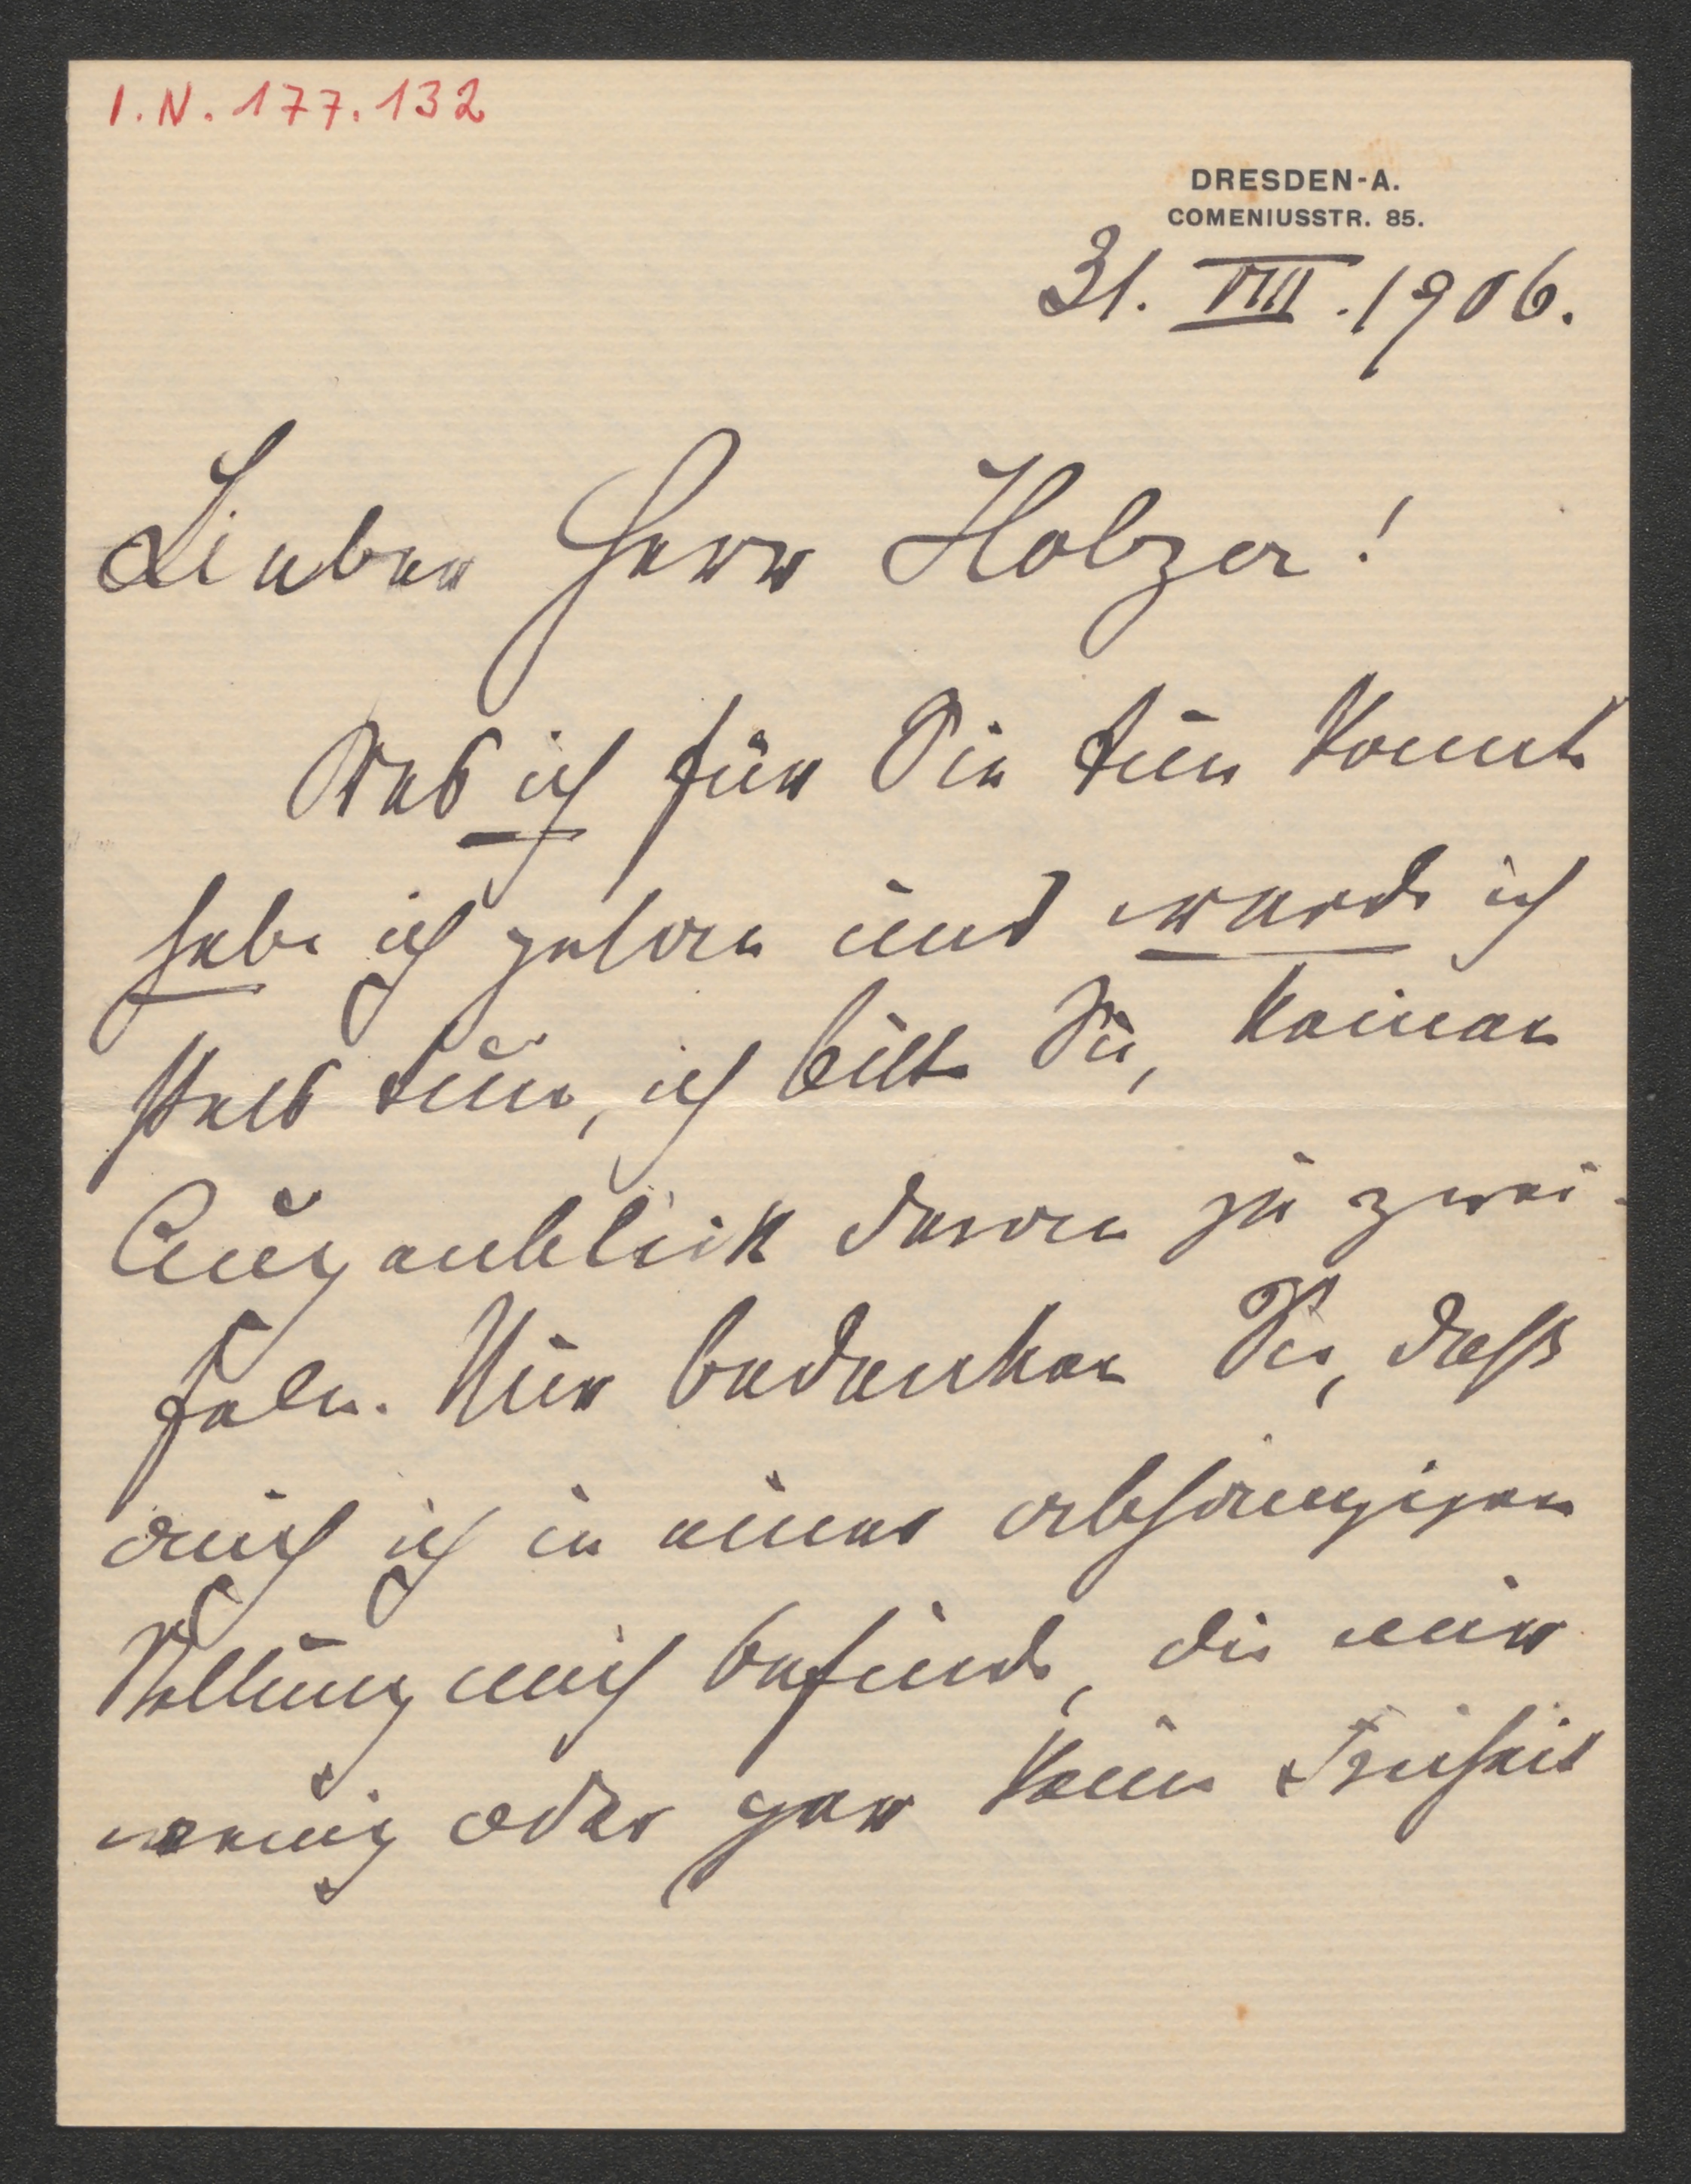 I.N. 177.132
DRESDEN-A.
COMENIUSSTR. 85.
31. VIII. 1906.
Lieber Herr Holzer!
Was ich für Sie tun konnte
habe ich getan und werde ich
stets tun, ich bitte Sie, keinen
Augenblick daran zu zwei-
feln. Nur bedenken Sie, dass
auch ich in einer abhängigen
Stellung mich befinde, die mir
wenig oder gar keine Freiheit